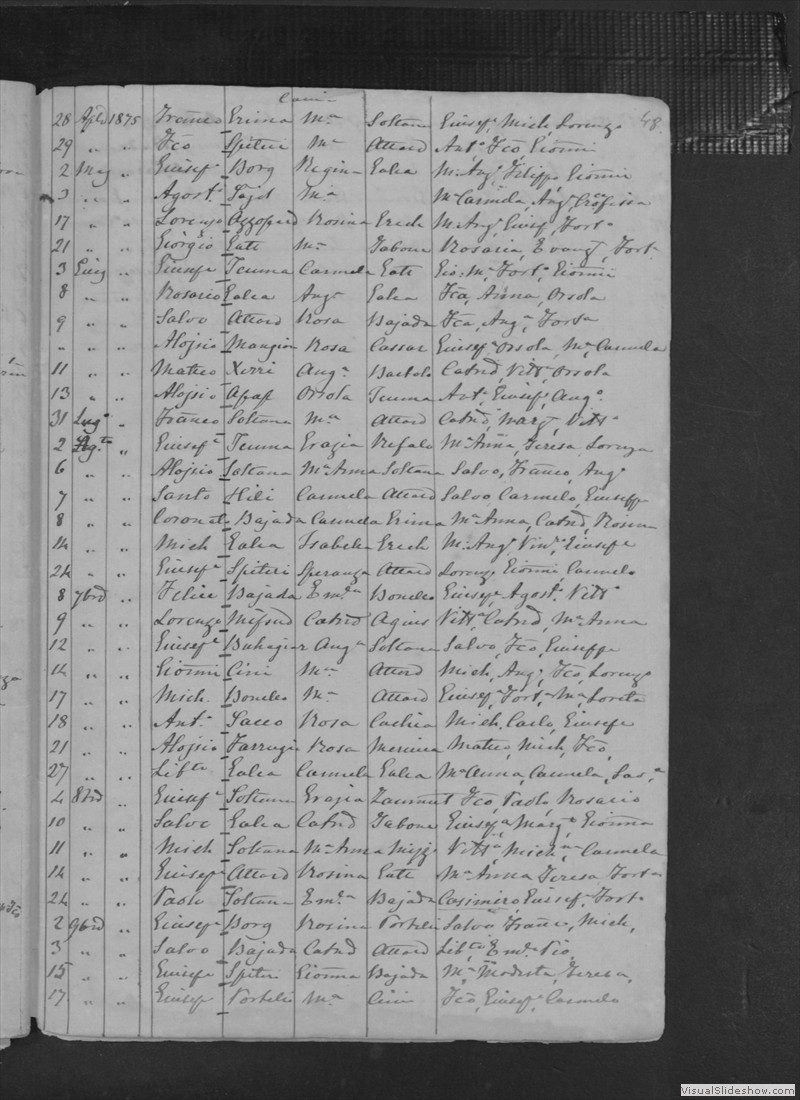 48.
28 Aple 1875 Franco Erima Ma Soltana Giusepe, Mich, Lorenzo
29 " " Fco Spiteri Ma Attard Anta, Fco Gionni
2 Mag " Giusepe Borg Regina Galea M. Ang, Filippo, Gionni
3 " " Agost. Ma Ma Carmela, Anga,
17 " " Lorenzo Azzopard Rosina Grech M. Ang, Giusep, Forta
21 " " Giorgio Gatt Ma Tabone Rosaria, Evang, Forta
3 Giug " Giusepe Teuma Carmela Gatt Gio. Ma, Forta, Gionni
8 " " Rosario Galea Anga Galea Fca, Anna, Orsola
9 " " Salvo Attard Rosa Bajada Fca, Anga, Forta
" " " Alojsio Mangion Rosa Cassar Giusepa, Orsola, Ma, Carmela
11 " " Matteo Xerri Anga Bartolo Catrd, Vitta, Orsola
13 " " Alojsio Agap Orsola Teuma Anta, Giusep, Ango
31 Lugo " Franco Soltana Ma Attard Catrd, Marg, Vitta
2 Agto " Giusepe Teuma Grazia Refalo Ma Anna, Teresa, Lorenza
6 " " Alojsio Soltana Ma Anna Soltana Salvo, Franco, Ang
7 " " Santo Hili Carmela Attard Salvo, Carmelo, Giuseppe
8 " " Coronato Bajada Carmela Erima Ma Anna, Catrd, Rosina
14 " " Mich Galea Isabella Grech M. Ang, Vin, Giusepe
24 " " Giusepe Spiteri Speranza Attard Lorenz, Gionni, Carmelo
8 7bre " Felice Bajada Ema Bondeo Giusepe, Agost, Vitt
9 " " Lorenzo Mifsud Catrd Agius Vitta, Catrd, Ma Anna
12 " " Giusepe Buhagiar Anga Soltana Salvo, Fco, Giuseppe
14 " " Gionni Cini Ma Attard Mich, Ang, Fco, Lorenzo
17 " " Mich. Ma Attard Giusepa, Forta, Ma, Loreta
18 " " Anto Sacco Rosa Cachia Mich, Carlo, Giusepe
21 " " Alojsio Farrugi Rosa Mercieca Matteo, Mich, Fco,
27 " " Libto Galea Carmela Galea Ma Anna, Carmela,
4 8bre " Giusepe Soltana Grazia Zammit Fco, Paolo, Rosario
10 " " Salvo Galea Catrd Tabone Giusepa, Marga, Gionna
11 " " Mich Soltana Ma Anna Mizzi Vitta, Mich, Carmela
14 " " Giusepe Attard Rosina Gatt Ma Anna, Teresa, Forta
24 " " Paolo Soltana Ema Bajada Casimiro, Giusep, Forta
2 9bre " Giusepe Borg Rosina Portelli Salvo, Franc, Mich,
3 " " Salvo Bajada Catrd Attard Libto, Emo, Pio,
15 " " Giusepe Spiteri Gionna Bajada Ma Modesta, Teresa,
17 " " Giusep Portelli Ma Cini Fco, Giusepe, Carmelo
VisualSlideshow.com